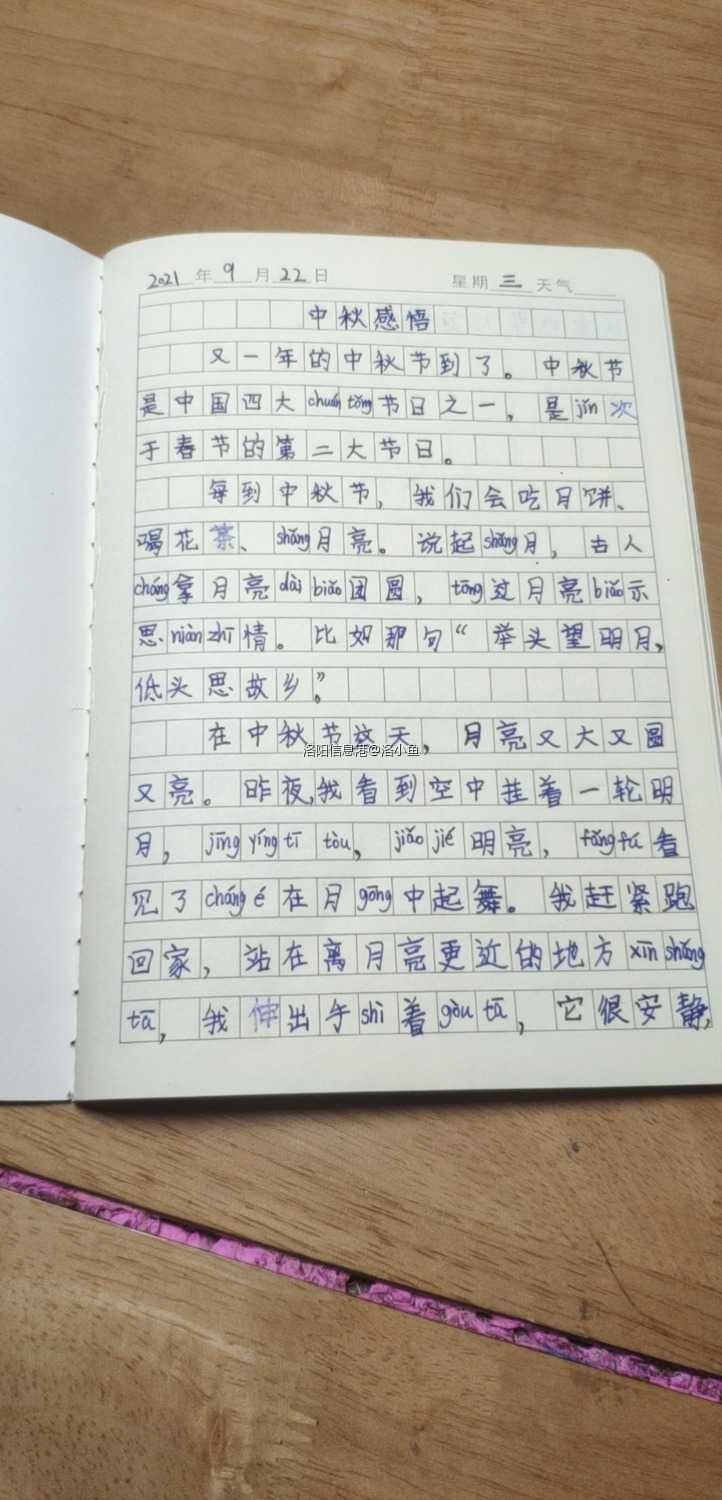 2021年9月22日 星期三天气
中秋感悟
又一年的中秋节到了。中秋节
是中国四大chuántǒng节日之一，是jǐn次
于春节的第二大节日。
每到中秋节，我们会吃月饼、
喝花茶、shǎng月亮。说起shǎng月，古人
cháng拿月亮dài biǎo团圆，tōng过月亮biǎo示
思niàn zhī情。比如那句“举头望明月，
低头思故乡”。
在中秋节这天，月亮又大又圆
洛阳信息港@洛小鱼
又亮。昨夜，我看到空中挂着一轮明
月，jīng yíng tī tòu，jiǎo jié明亮，fǎng fú看
见了cháng é在月gōng中起舞。我赶紧跑
回家，站在离月亮更近的地方xīn shǎng
tā，我伸出手shì着gòu tā，它很安静，